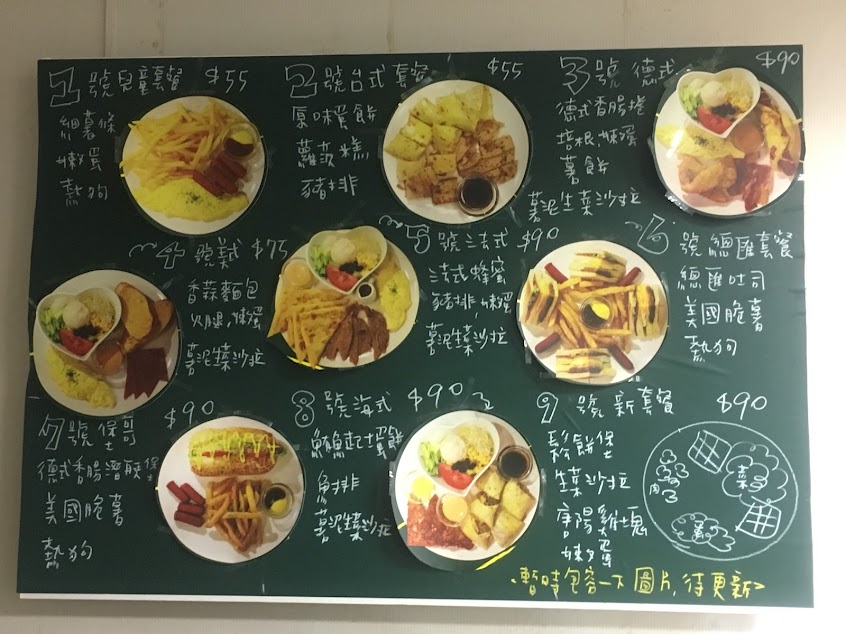 1 號兒童套餐 $55
細薯條
嫩蛋
熱狗
2 號台式套餐 $55
原味蛋餅
蘿蔔糕
豬排
3 號 德式 $90
德式香腸捲
培根,嫩蛋
薯餅
薯泥生菜沙拉
4 號美式 $75
香蒜麵包
火腿,嫩蛋
薯泥生菜沙拉
5 號法式 $90
法式蜂蜜
豬排,嫩蛋
薯泥生菜沙拉
6 號總匯套餐
總匯吐司
美國脆薯
熱狗
7 號堡哥 $90
德式香腸潛艇堡
美國脆薯
熱狗
8 號海式 $90
鮪魚起士蛋餅
魚排
薯泥生菜沙拉
9 號新套餐 $90
鬆餅堡
生菜沙拉
唐陽雞塊
嫩蛋
肉
菜
蛋
<暫時包容一下圖片,待更新>